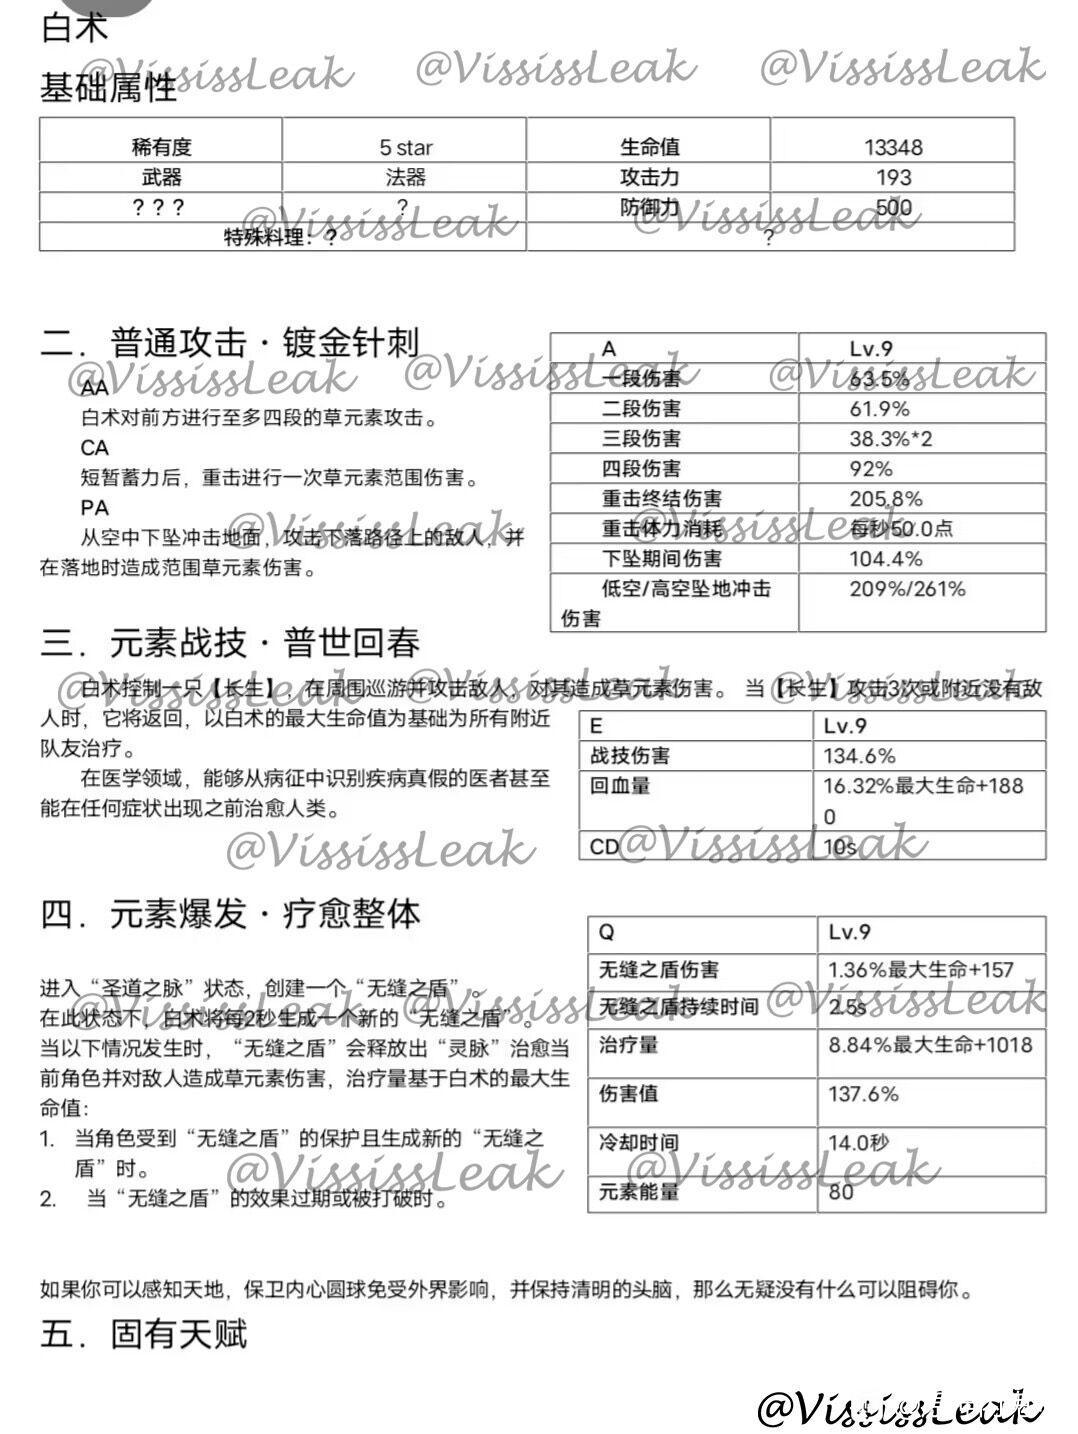 白术
@VississLeak @VississLeak @VississLeak
基础属性
稀有度 5 star 生命值 13348
武器 法器 攻击力 193
？？？ ? 防御力 500
@VississLeak @VississLeak
特殊料理：？ ?
二．普通攻击·镀金针刺
@VississLeak @VississLeak @VississLeak
AA
白术对前方进行至多四段的草元素攻击。
CA
短暂蓄力后，重击进行一次草元素范围伤害。
PA
@VississLeak @VississLeak
从空中下坠冲击地面，攻击下落路径上的敌人，并
在落地时造成范围草元素伤害。
A Lv.9
一段伤害 63.5%
二段伤害 61.9%
三段伤害 38.3%*2
四段伤害 92%
重击终结伤害 205.8%
重击体力消耗 每秒50.0点
下坠期间伤害 104.4%
低空/高空坠地冲击 209%/261%
伤害
三．元素战技·普世回春
@VississLeak @VississLeak @VississLeak
白术控制一只【长生】，在周围巡游并攻击敌人，对其造成草元素伤害。 当【长生】攻击3次或附近没有敌
人时，它将返回，以白术的最大生命值为基础为所有附近
队友治疗。
在医学领域，能够从病征中识别疾病真假的医者甚至
能在任何症状出现之前治愈人类。
E Lv.9
战技伤害 134.6%
回血量 16.32%最大生命+188
0
CD 10s
@VississLeak @VississLeak
四．元素爆发·疗愈整体
进入“圣道之脉”状态，创建一个“无缝之盾”。
@VississLeak @VississLeak @VississLeak
在此状态下，白术将每2秒生成一个新的“无缝之盾”。
当以下情况发生时，“无缝之盾”会释放出“灵脉”治愈当
前角色并对敌人造成草元素伤害，治疗量基于白术的最大生
命值：
1. 当角色受到“无缝之盾”的保护且生成新的“无缝之
盾”时。
2. 当“无缝之盾”的效果过期或被打破时。
@VississLeak @VississLeak
Q Lv.9
无缝之盾伤害 1.36%最大生命+157
无缝之盾持续时间 2.5s
治疗量 8.84%最大生命+1018
伤害值 137.6%
冷却时间 14.0秒
元素能量 80
如果你可以感知天地，保卫内心圆球免受外界影响，并保持清明的头脑，那么无疑没有什么可以阻碍你。
五．固有天赋
@VississLeak